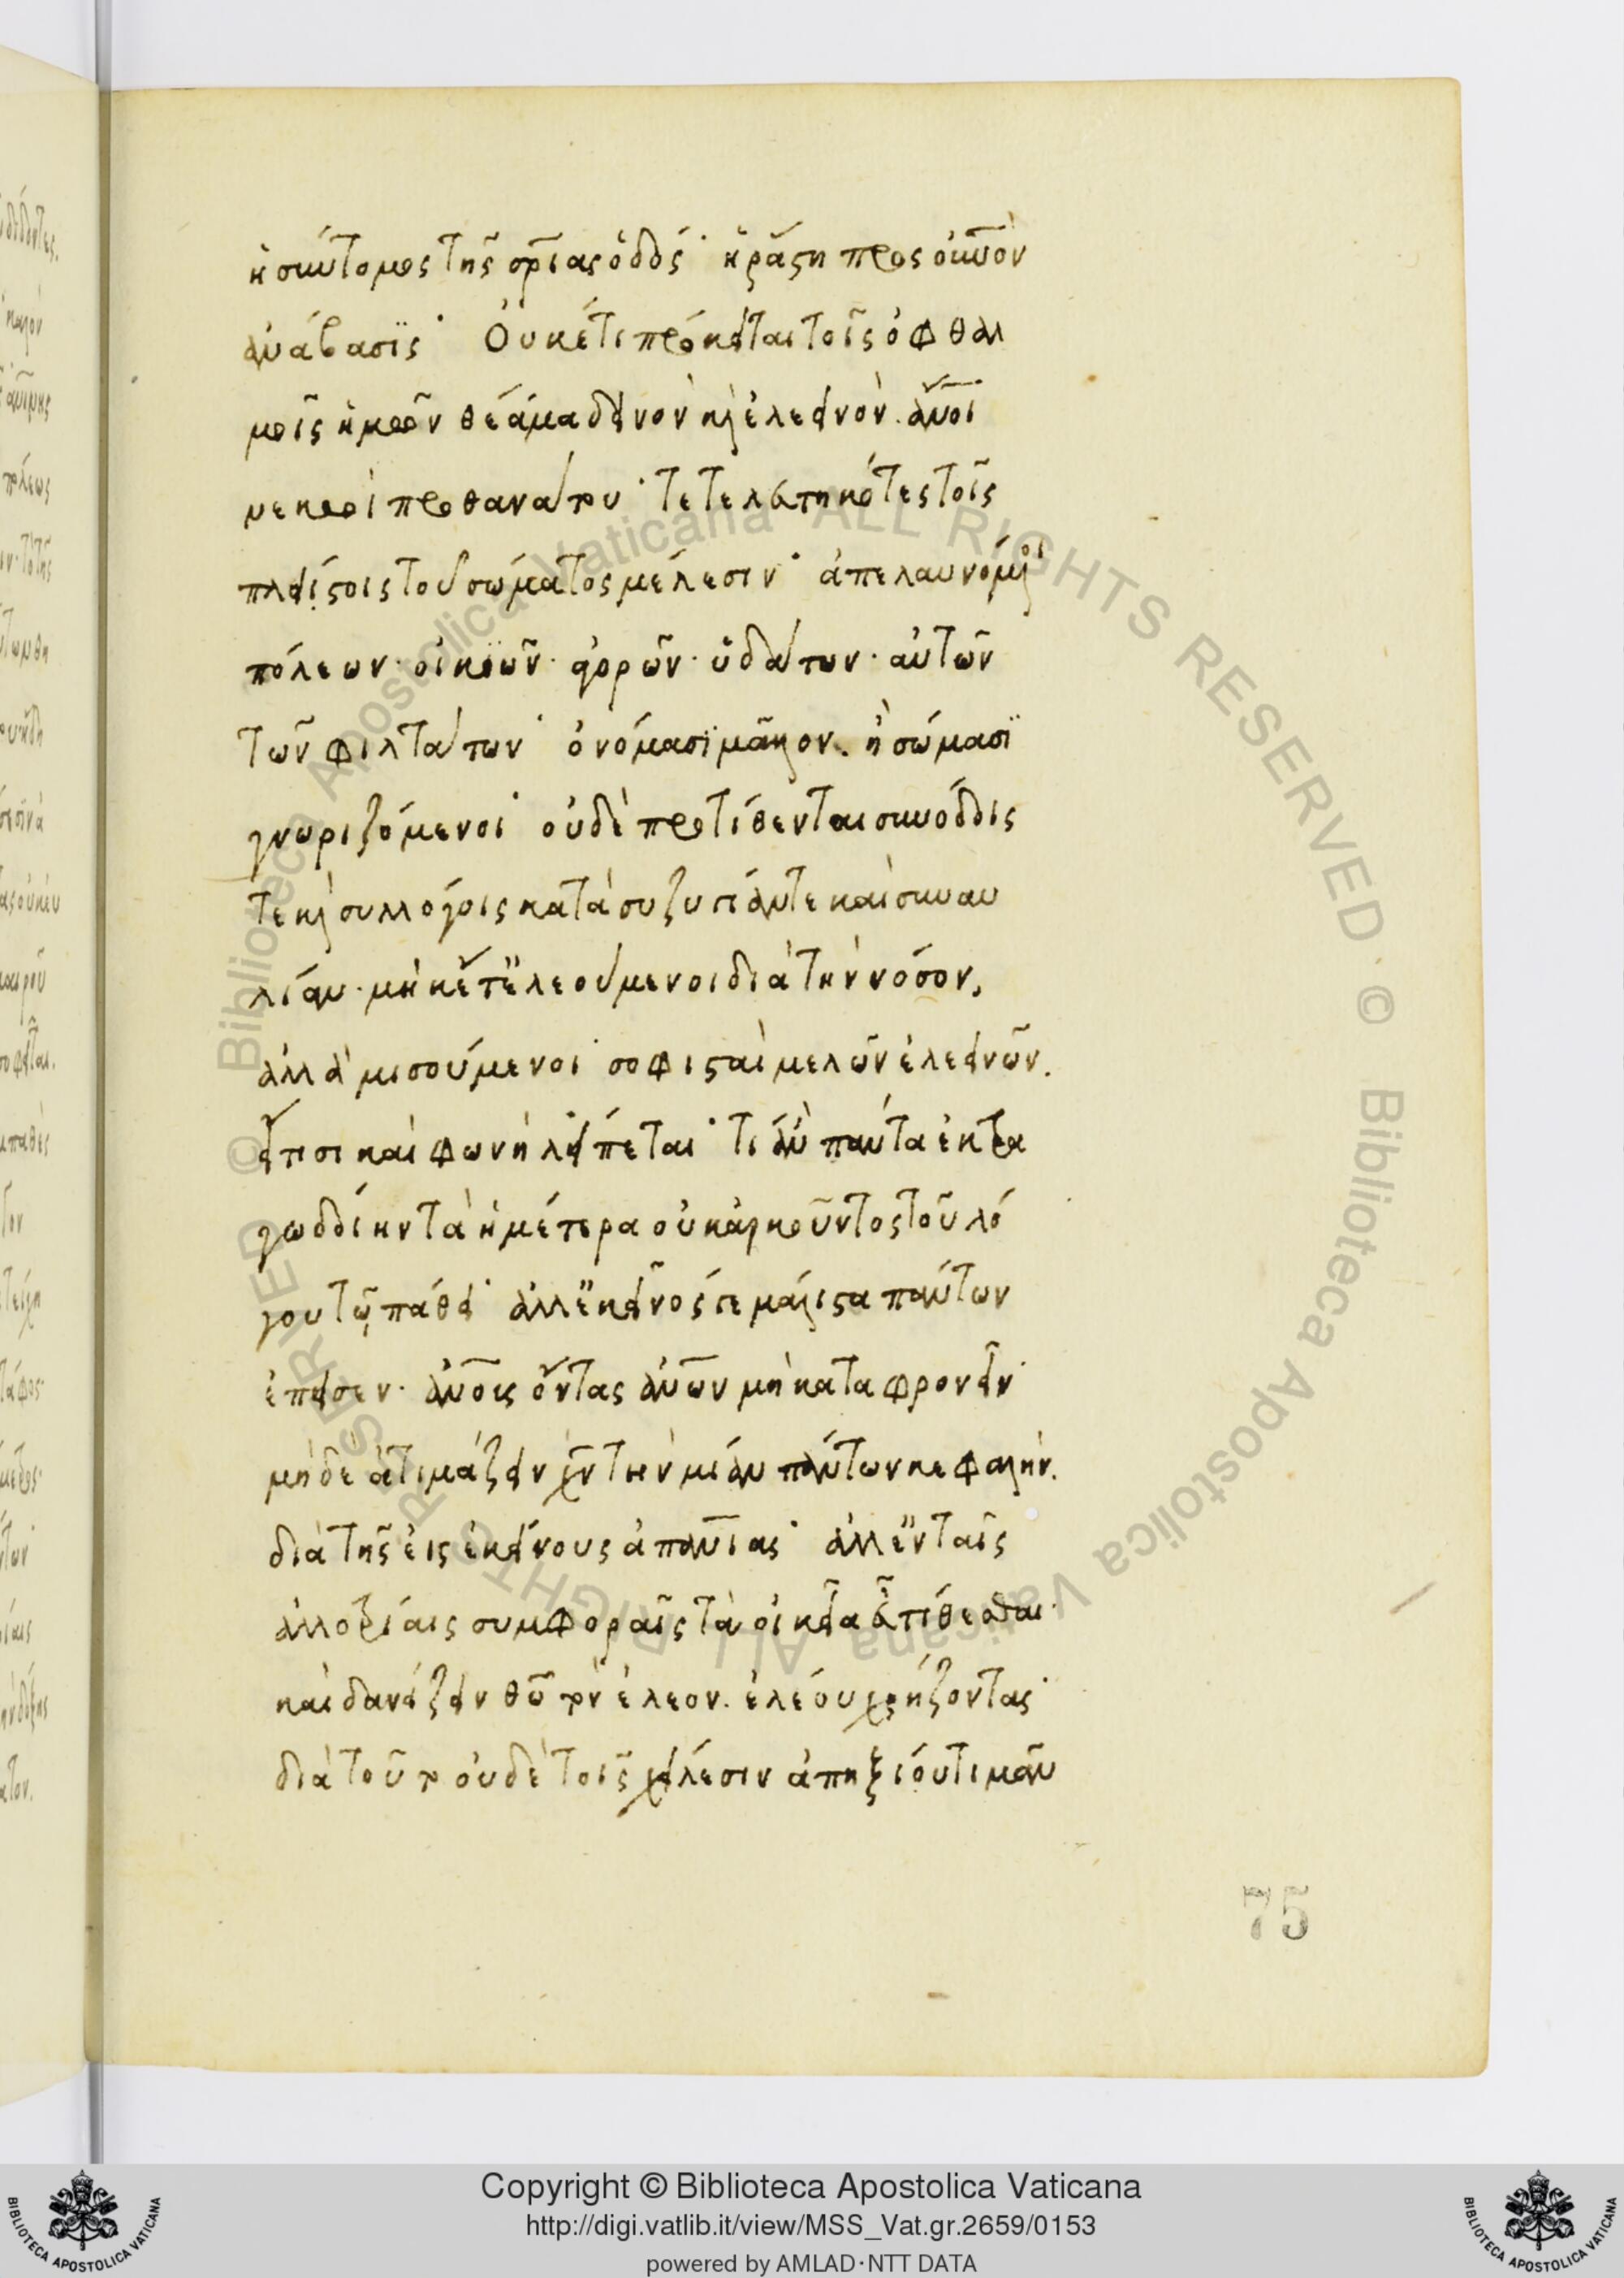 ἡ σύντομος τῆς σρίας ὁδός· ἡ ράστη προς ουνὸν
ἀνάβασϊς· Οὐκέτι πρόκειται τοῖς ὀφθαλ
μοῖς ἡμῶν θέαμα δεινὸν κὶ ἐλεεινὸν. ἄνοι
νεκροὶ προ θανάτου· τετελευτηκότες τοῖς
πλείστοις τοῦ σώματος μέλεσιν· ἀπελαυνόμενοι
πόλεων· οἰκϊῶν· ἀγορῶν· ὑδάτων· αὐτῶν
τῶν φιλτάτων· ὀνόμασϊ μᾶλλον. ἢ σώμασϊ
γνωριζόμενοι· οὐδὲ προτίθενται συνόδοις
τε κὶ συλλόγοις κατὰ συζυγίαν τε καὶ συναυ
λίαν· μηκέτ ἐλεούμενοι διὰ τὴν νόσον,
ἀλλὰ μισούμενοι· σοφισταὶ μελῶν ἐλεεινῶν.
εἴ τισι καὶ φωνὴ λείπεται· τί ἂν πάντα ἐκτρα
γωδοίην τὰ ἡμέτερα οὐκ ἀρκοῦντος τοῦ λό
γου τῷ πάθει· ἀλλ ἐκεῖνός γε μάλιστα πάντων
ἔπεισεν· ἀνοις ὄντας ἀνων μὴ καταφρονεῖν·
μηδὲ ἀτιμάζειν χν τὴν μίαν πάντων κεφαλὴν.
διὰ τῆς εἰς ἐκείνους ἀπανίας· ἀλλ ἐν ταῖς
ἀλλοτρίαις συμφοραῖς τὰ οἰκεῖα εὖ τίθεσθαι·
καὶ δανείζειν θω τὸν ἔλεον. ἐλέου χρήζοντας·
διὰ τοῦτο οὐδὲ τοῖς χείλεσιν ἀπηξίου τιμᾶν
75
Copyright © Biblioteca Apostolica Vaticana
http://digi.vatlib.it/view/MSS_Vat.gr.2659/0153
powered by AMLAD·NTT DATA